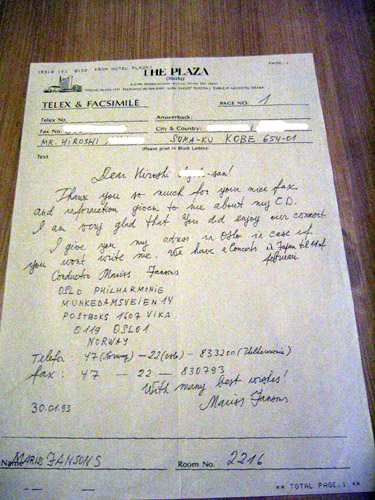 PAGE:1
THE PLAZA
(Osaka)
TELEX & FACSIMILE
PAGE NO. 1
Telex No.
Answerback:
Fax No.
City & Country:
MR. HIROSHI
SUMA-KU KOBE 654-01
(Please print in Block Letters)
Text
Dear Hiroshi -san!
Thank you so much for your nice fax
and information given to me about my C.D.
I am very glad that You did enjoy our concert.
I give you my adress in Oslo in case if
you wont write me. We have a Concerts in Japan till 11 of
februari.
Conductor Mariss Jansons
OSLO PHILHARMONIE
MUNKEDAMSVEIEN 14
POSTBOKS 1607 VIKA
0119 OSLO1
NORWAY
Telefon: 47 (Norway) - 22 (oslo) - 833200 (Philharmonie)
fax: 47 - 22 - 830793
With many best wishes!
Mariss Jansons
30.01.93
Name MARIS JANSONS
Room No. 2216
** TOTAL PAGE.1 **